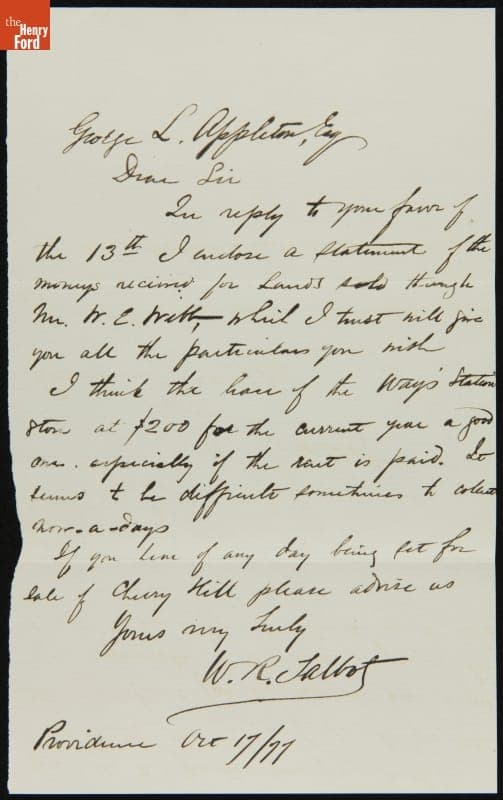 the
Henry
Ford
George L. Appleton, Esq
Dear Sir
In reply to your favor of
the 13th I enclose a statement of the
moneys received for Lands sold through
Mr. W. E. Webb, which I trust will give
you all the particulars you wish
I think the lease of the Way's Station
Store at $200 for the current year a good
one. especially if the rent is paid. It
seems to be difficult sometimes to collect
now-a-days
If you hear of any day being set for
sale of Cherry Hill please advise us
Yours very truly
W. R. Talbot
Providence Oct 17/77